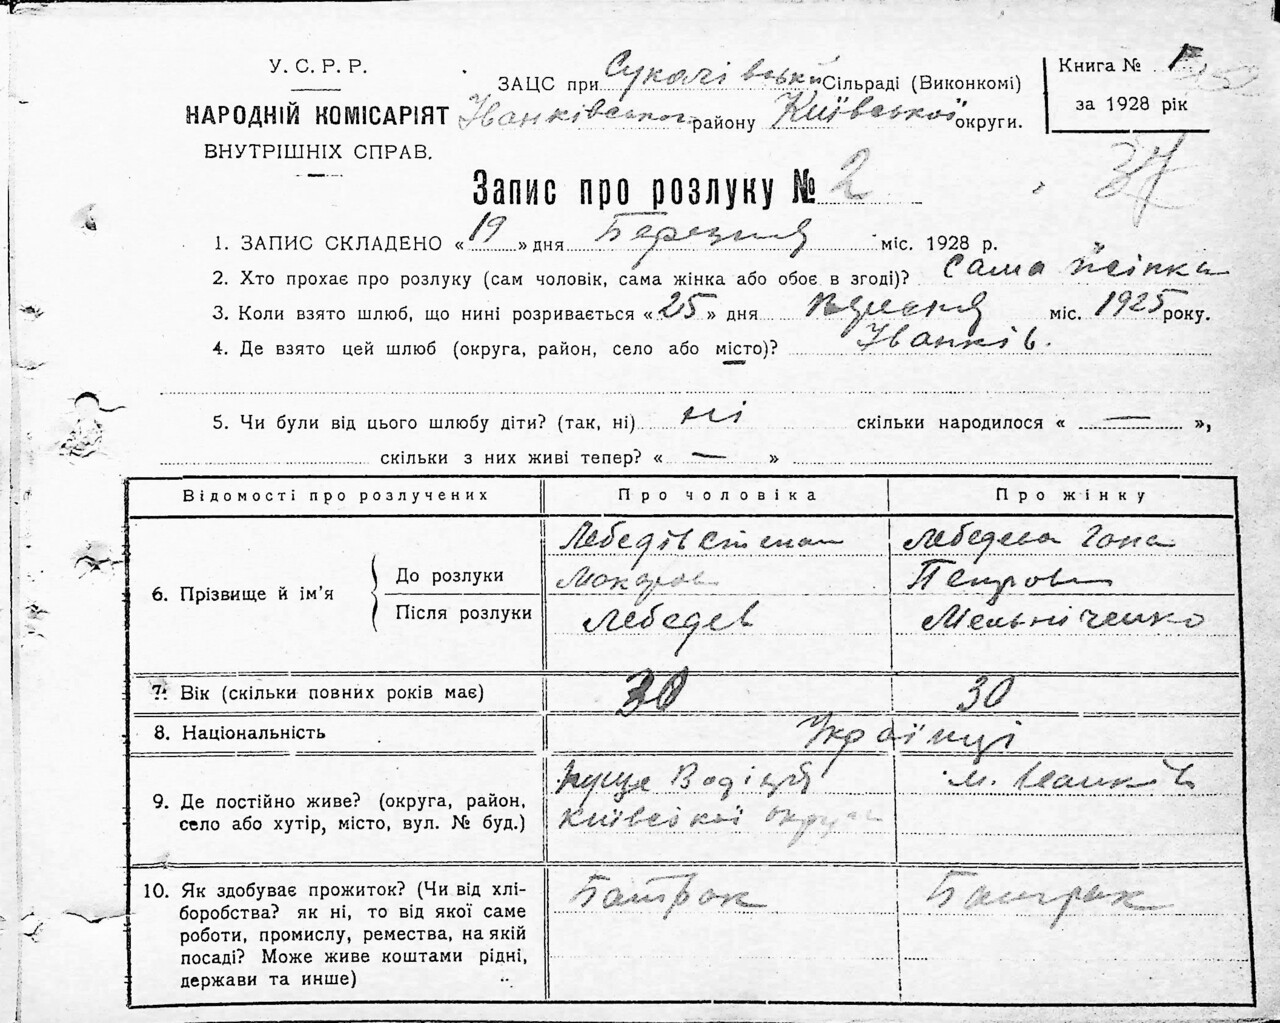 У. С. Р. Р.
НАРОДНІЙ КОМІСАРІЯТ
ВНУТРІШНІХ СПРАВ.
ЗАЦС при Сукачівській Сільраді (Виконкомі)
Іванківського району Київської округи.
Книга №
за 1928 рік
37
Запис про розлуку № 2
1. ЗАПИС СКЛАДЕНО « 19 » дня Березня міс. 1928 р.
2. Хто прохає про розлуку (сам чоловік, сама жінка або обоє в згоді)? Сама жінка
3. Коли взято шлюб, що нині розривається « 25 » дня міс. 1925 року.
4. Де взято цей шлюб (округа, район, село або місто)? Іванків.
5. Чи були від цього шлюбу діти? (так, ні) ні скільки народилося « — »,
скільки з них живі тепер? « — »
Відомості про розлучених Про чоловіка Про жінку
6. Прізвище й ім'я
До розлуки Лебедів Степан Лебедева Гапа
Макаров Петровн
Після розлуки Лебедев Мельніченко
7. Вік (скільки повних років має) 30 30
8. Національність Українці
9. Де постійно живе? (округа, район, село або хутір, місто, вул. № буд.) Пуще Водіця м. Іванків
Київської округи
10. Як здобуває прожиток? (Чи від хлі-
боробства? як ні, то від якої саме
роботи, промислу, ремества, на якій
посаді? Може живе коштами рідні,
держави та инше)
Батрак Батрак